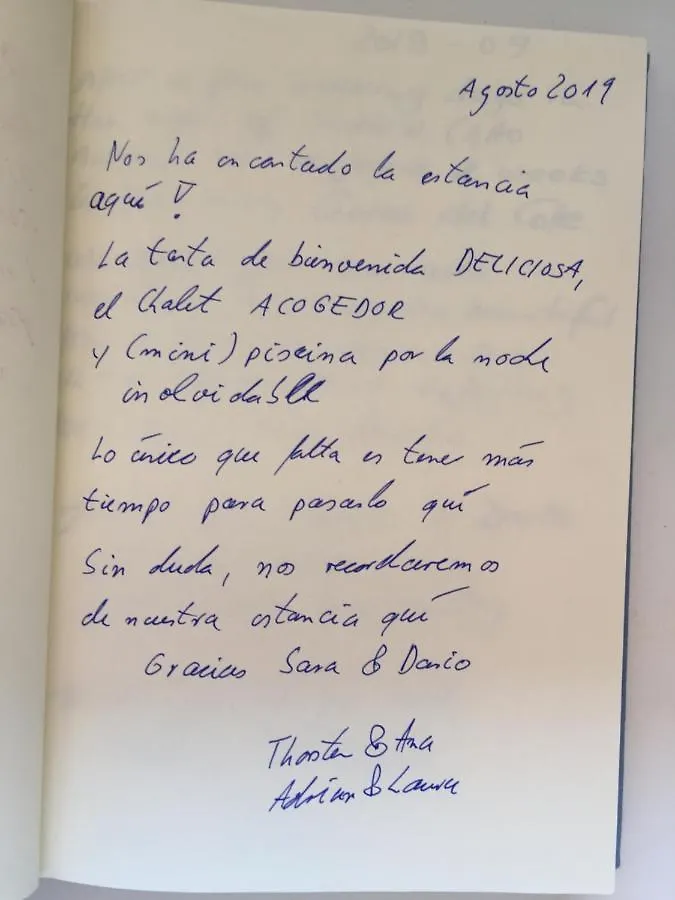 Agosto 2019
Nos ha encantado la estancia
aquí !
La tarta de bienvenida DELICIOSA,
el Chalet ACOGEDOR
y (mini) piscina por la noche
inolvidable
Lo único que falta es tener más
tiempo para pasarlo quí
Sin duda, nos recordaremos
de nuestra estancia quí
Gracias Sara & Dario
Thorsten & Ana
Adrian & Laura